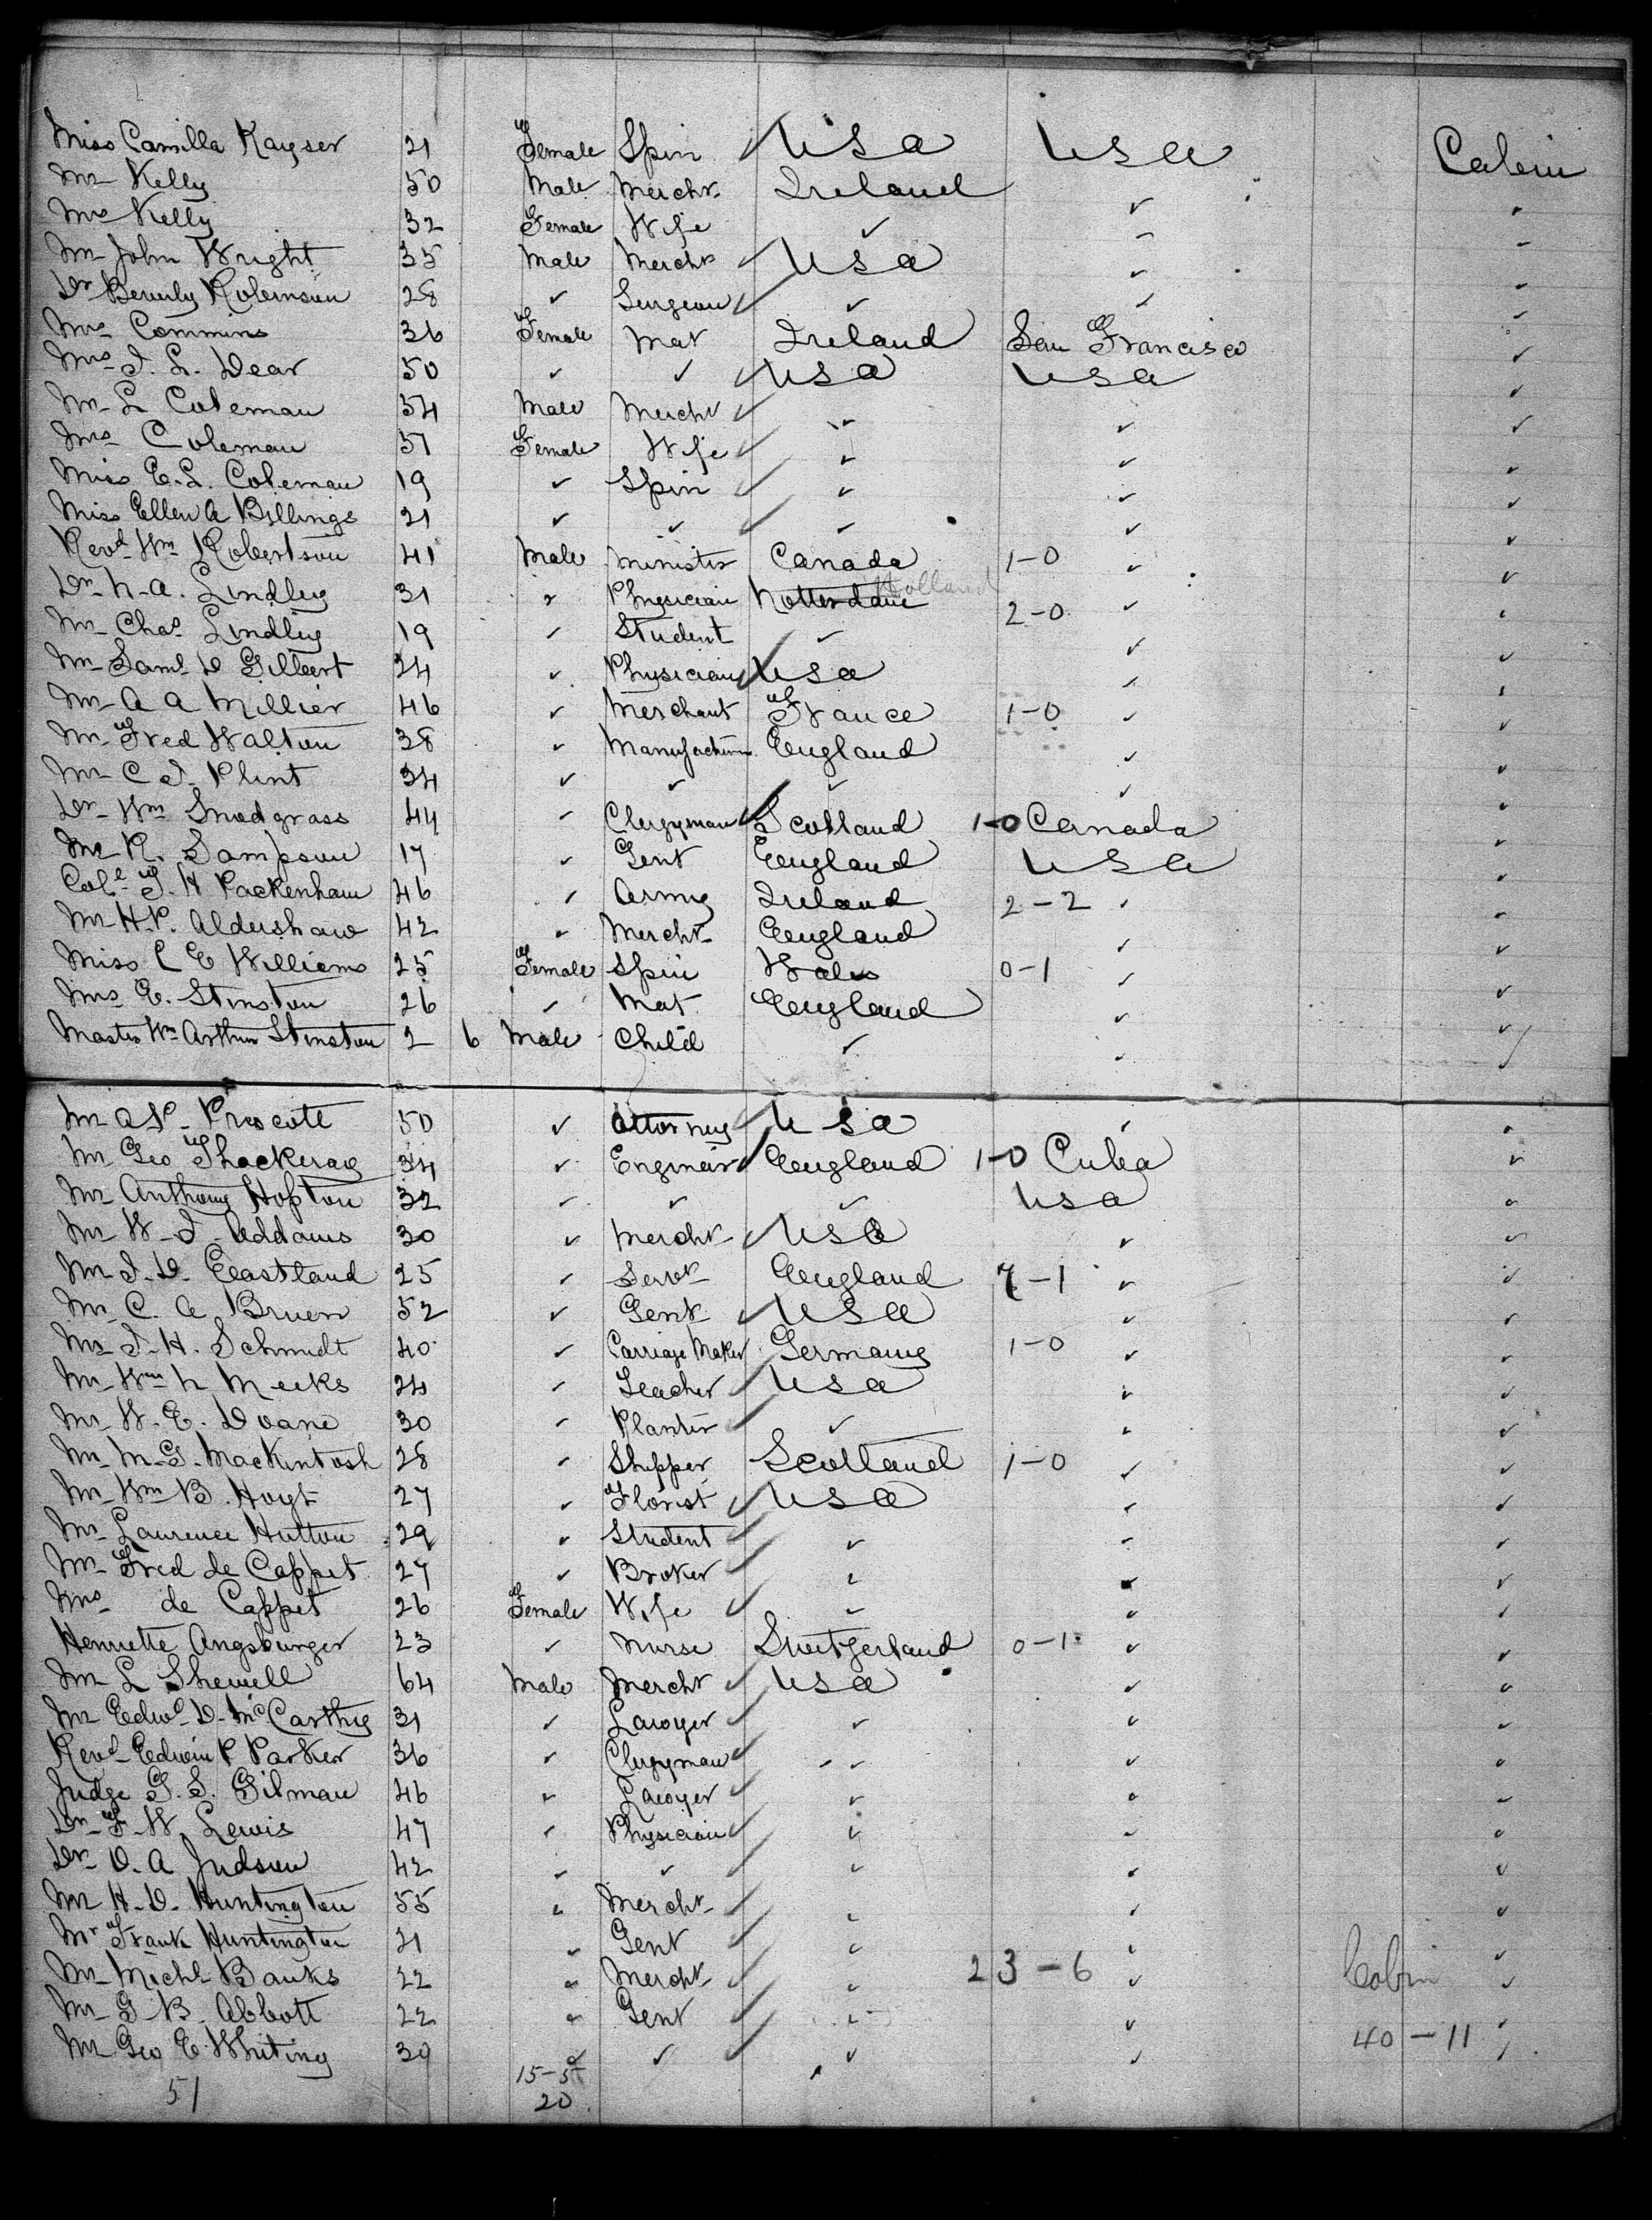 Miss Camilla Kayser 21 Female Spin ✓ USA USA Cabin
Mr Kelly 50 Male Mercht Ireland ✓ ✓
Mrs Kelly 32 Female Wife ✓ ✓ ✓
Mr John Wright 35 Male Mercht ✓ USA ✓ ✓
Dr Beverly Robinson 28 ✓ Surgeon ✓ ✓ ✓ ✓
Mrs Commins 36 Female Mat Ireland San Francisco ✓
Mrs J. L. Dear 50 ✓ ✓ ✓ USA USA ✓
Mr L Coleman 54 Male Mercht ✓ ✓ ✓ ✓
Mrs Coleman 51 Female Wife ✓ ✓ ✓ ✓
Miss E. L. Coleman 19 ✓ Spin ✓ ✓ ✓ ✓
Miss Ellen A Billings 21 ✓ ✓ ✓ ✓ ✓ ✓
Revd Wm Robertson 41 Male Minister Canada 1-0 ✓ ✓
Dr N. A. Lindley 31 ✓ Physician Rotterdam Holland 2-0 ✓ ✓
Mr Chas Lindley 19 ✓ Student ✓ ✓ ✓
Mr Saml D Gilbert 24 ✓ Physician ✓ USA ✓ ✓
Mr A A Millier 46 ✓ Merchant France 1-0 ✓ ✓
Mr Fred Walton 38 ✓ Manufacturer England ✓ ✓
Mr C J. Plint 34 ✓ ✓ ✓ ✓ ✓
Dr Wm Snodgrass 44 ✓ Clergyman ✓ Scotland 1-0 Canada ✓
Mr R. Sampson 17 ✓ Gent England USA ✓
Coll T. H Packenham 46 ✓ Army Ireland 2-2 ✓ ✓
Mr H. P. Aldershaw 42 ✓ Mercht England ✓ ✓
Miss L E Williams 25 Female Spin Wales 0-1 ✓ ✓
Mrs E. Stinston 26 ✓ Mat England ✓ ✓
Master Wm Arthur Stinston 2 6 Male Child ✓ ✓ ✓
Mr A P. Prescott 50 ✓ Attorney ✓ USA ✓ ✓
Mr Geo Thackeray 34 ✓ Engineer ✓ England 1-0 Cuba ✓
Mr Anthony Hopton 32 ✓ ✓ ✓ USA ✓
Mr W. J. Addams 30 ✓ Mercht ✓ USA ✓ ✓
Mr J. D. Eastland 25 ✓ Servt England 7-1 ✓ ✓
Mr C. A Bruen 52 ✓ Gent ✓ USA ✓ ✓
Mr J. H. Schmidt 40 ✓ Carriage Maker Germany 1-0 ✓ ✓
Mr Wm N Meeks 24 ✓ Teacher ✓ USA ✓ ✓
Mr W. E. Doane 30 ✓ Planter ✓ ✓ ✓ ✓
Mr M. G. Mackintosh 28 ✓ Shipper Scotland 1-0 ✓ ✓
Mr Wm B. Hoyt 27 ✓ Florist ✓ USA ✓ ✓
Mr Laurence Hutton 29 ✓ Student ✓ ✓ ✓ ✓
Mr Fred de Coppet 27 ✓ Broker ✓ ✓ ✓ ✓
Mrs de Coppet 26 Female Wife ✓ ✓ ✓ ✓
Henriette Angsburger 23 ✓ Nurse Switzerland 0-1 ✓ ✓
Mr L Shewell 64 Male Mercht ✓ USA ✓ ✓
Mr Edwd D. McCarthy 31 ✓ Lawyer ✓ ✓ ✓ ✓
Revd Edwin P Parker 36 ✓ Clergyman ✓ ✓ ✓ ✓
Judge G. S. Gilman 46 ✓ Lawyer ✓ ✓ ✓ ✓
Dr F. W. Lewis 47 ✓ Physician ✓ ✓ ✓ ✓
Dr O. A Judson 42 ✓ ✓ ✓ ✓ ✓ ✓
Mr H. D. Huntington 55 ✓ Mercht ✓ ✓ ✓ ✓
Mr Frank Huntington 21 ✓ Gent ✓ ✓ ✓ ✓
Mr Michl Banks 22 ✓ Mercht ✓ ✓ 23-6 ✓ Cabin ✓
Mr G B. Abbott 22 ✓ Gent ✓ ✓ ✓ ✓
Mr Geo E. Whiting 30 ✓ ✓ ✓ ✓ ✓ 40-11 ✓
51 15-5
20